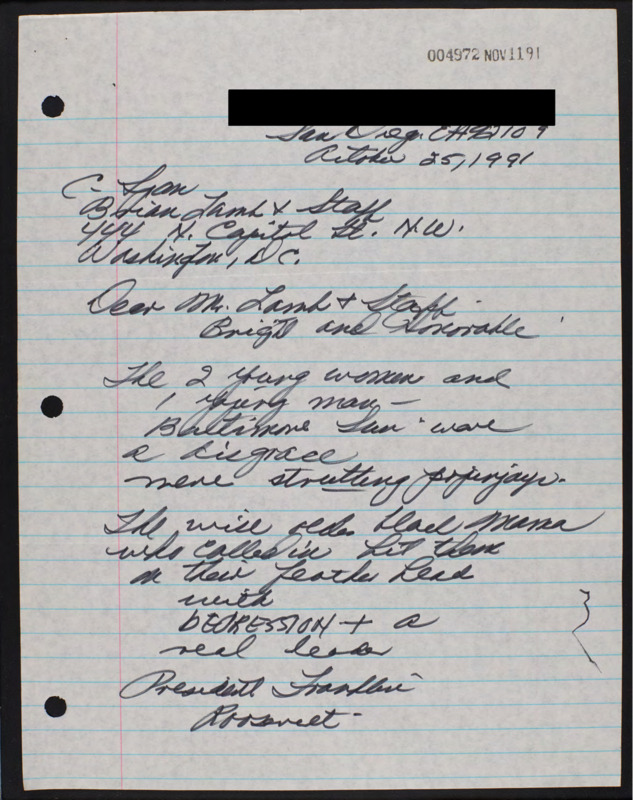 004972 NOV1191
San Diego, CA 92109
October 25, 1991
C-Span
Brian Lamb + Staff
444 N. Capitol St. N.W.
Washington, D.C.
Dear Mr. Lamb + Staff
Bright and Honorable
The 2 young women and
1 young man –
Baltimore Sun were
a disgrace
mere strutting popinjays.
The wise older black Mama
who called in hit them
on their feather head
with
DEPRESSION + a
real leader
President Franklin
Roosevelt